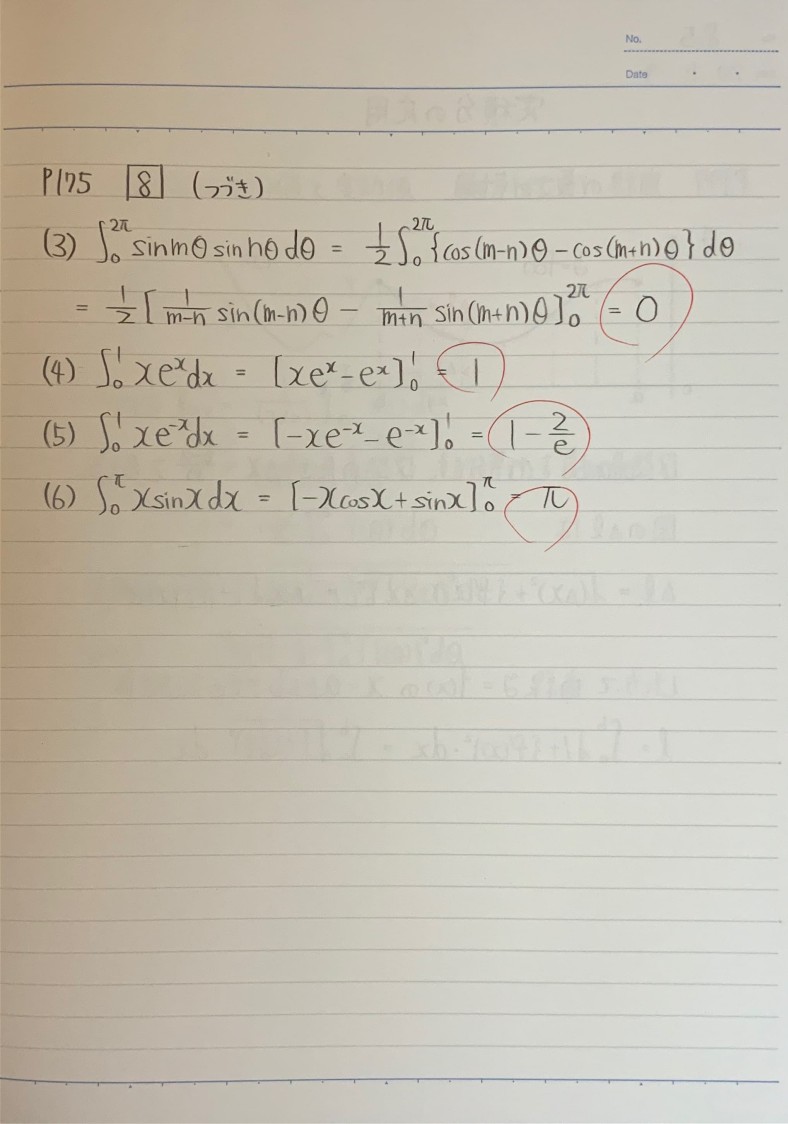 No.
Date
P175 8 (つづき)
(3) ∫₀^{2π} sinmθ sinnθ dθ = 1/2 ∫₀^{2π} {cos(m-n)θ - cos(m+n)θ} dθ
= 1/2 [ 1/(m-n) sin(m-n)θ - 1/(m+n) sin(m+n)θ ]₀^{2π} = 0
(4) ∫₀^1 xe^x dx = [xe^x - e^x]₀^1 = 1
(5) ∫₀^1 xe^{-x} dx = [-xe^{-x} - e^{-x}]₀^1 = 1 - 2/e
(6) ∫₀^π x sinx dx = [-x cosx + sinx]₀^π = π